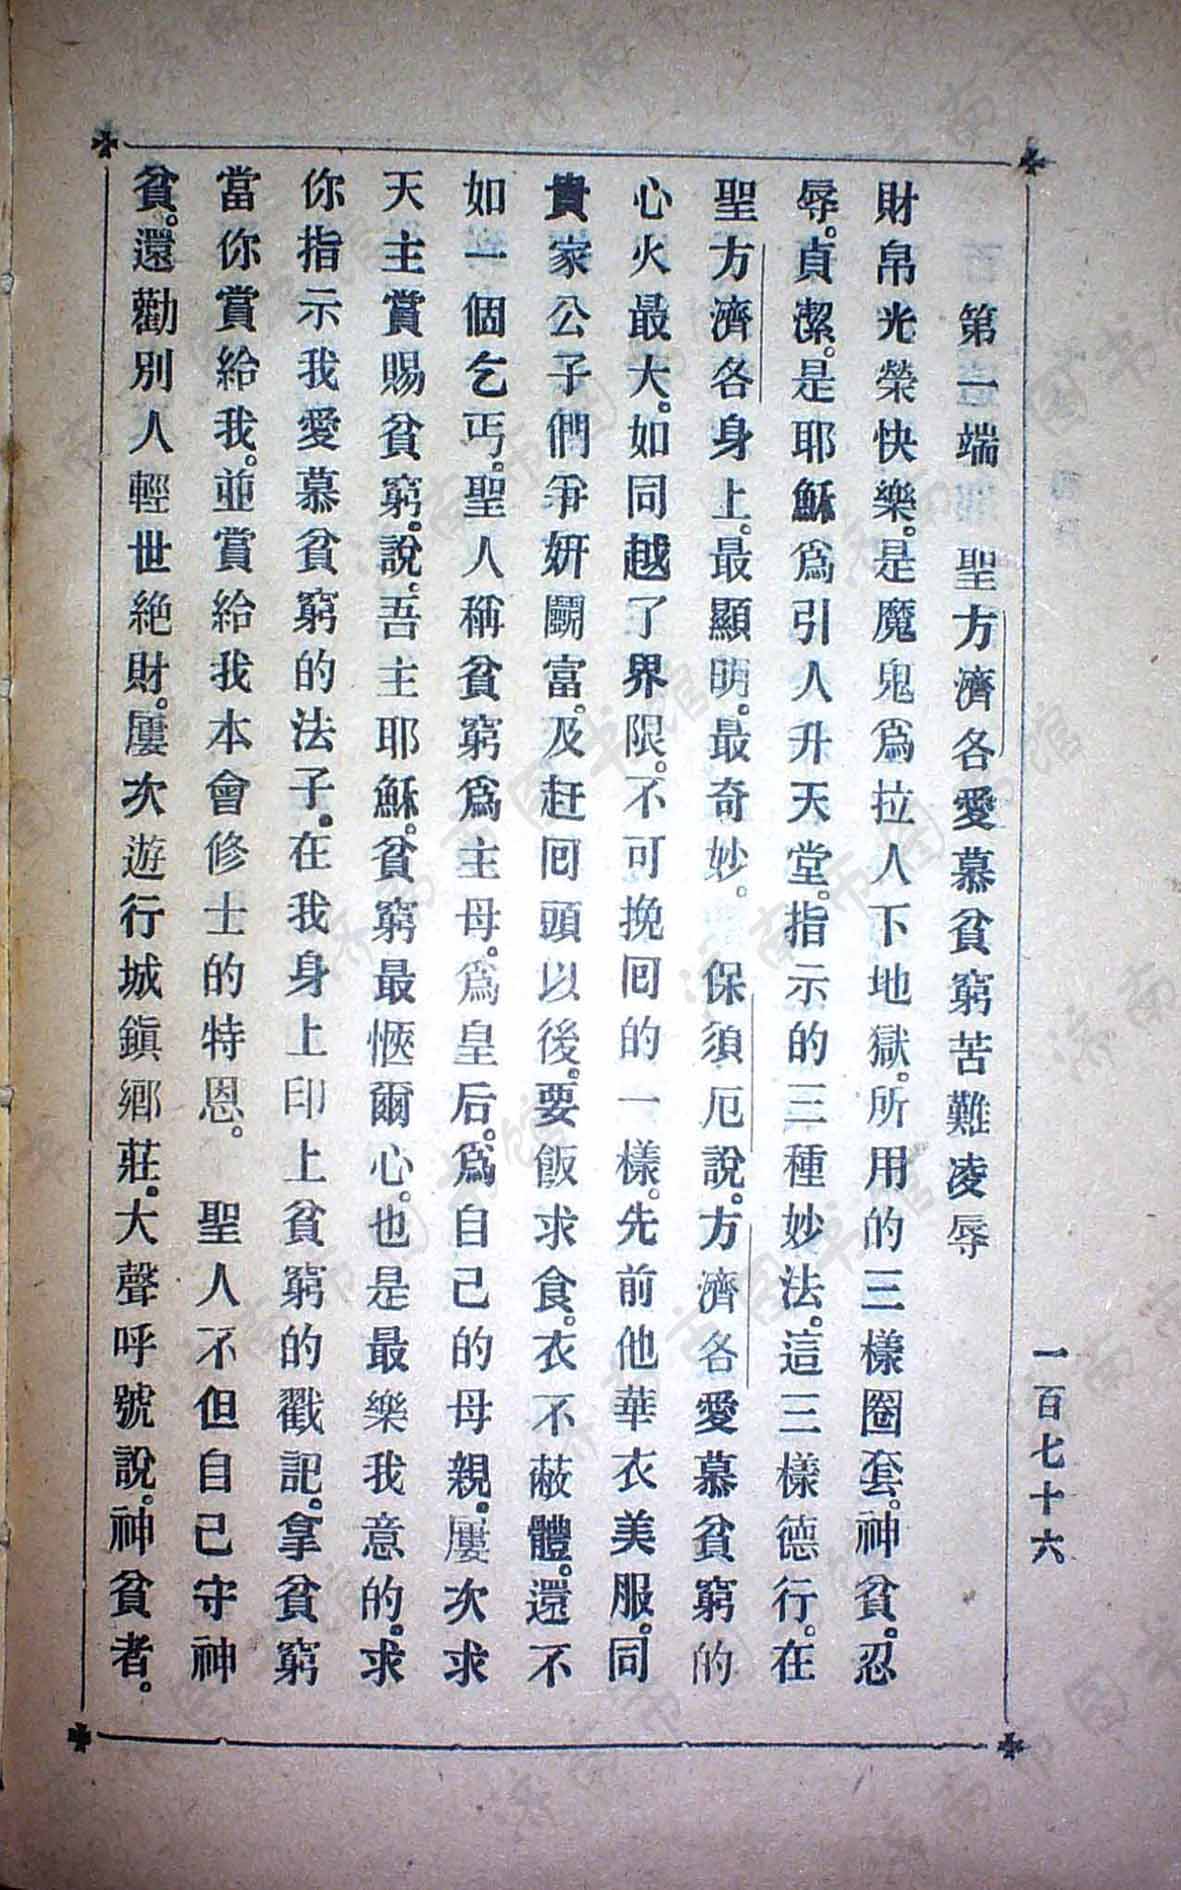 一百七十六
第一端　聖方濟各愛慕貧窮苦難凌辱
財帛光榮快樂。是魔鬼爲拉人下地獄。所用的三樣圈套。神貧。忍
辱。貞潔。是耶穌爲引人升天堂。指示的三種妙法。這三樣德行。在
聖方濟各身上。最顯明。最奇妙。　保須厄說。方濟各愛慕貧窮的
心火最大。如同越了界限。不可挽囘的一樣。先前他華衣美服。同
貴家公子們爭妍鬭富。及赶囘頭以後。要飯求食。衣不蔽體。還不
如一個乞丐。聖人稱貧窮爲主母。爲皇后。爲自己的母親。屢次求
天主賞賜貧窮。說。吾主耶穌。貧窮最愜爾心。也是最樂我意的。求
你指示我愛慕貧窮的法子。在我身上印上貧窮的戳記。拿貧窮
當你賞給我。並賞給我本會修士的特恩。　聖人不但自己守神
貧。還勸別人輕世絶財。屢次遊行城鎭鄉莊。大聲呼號說。神貧者。
济南市图书馆